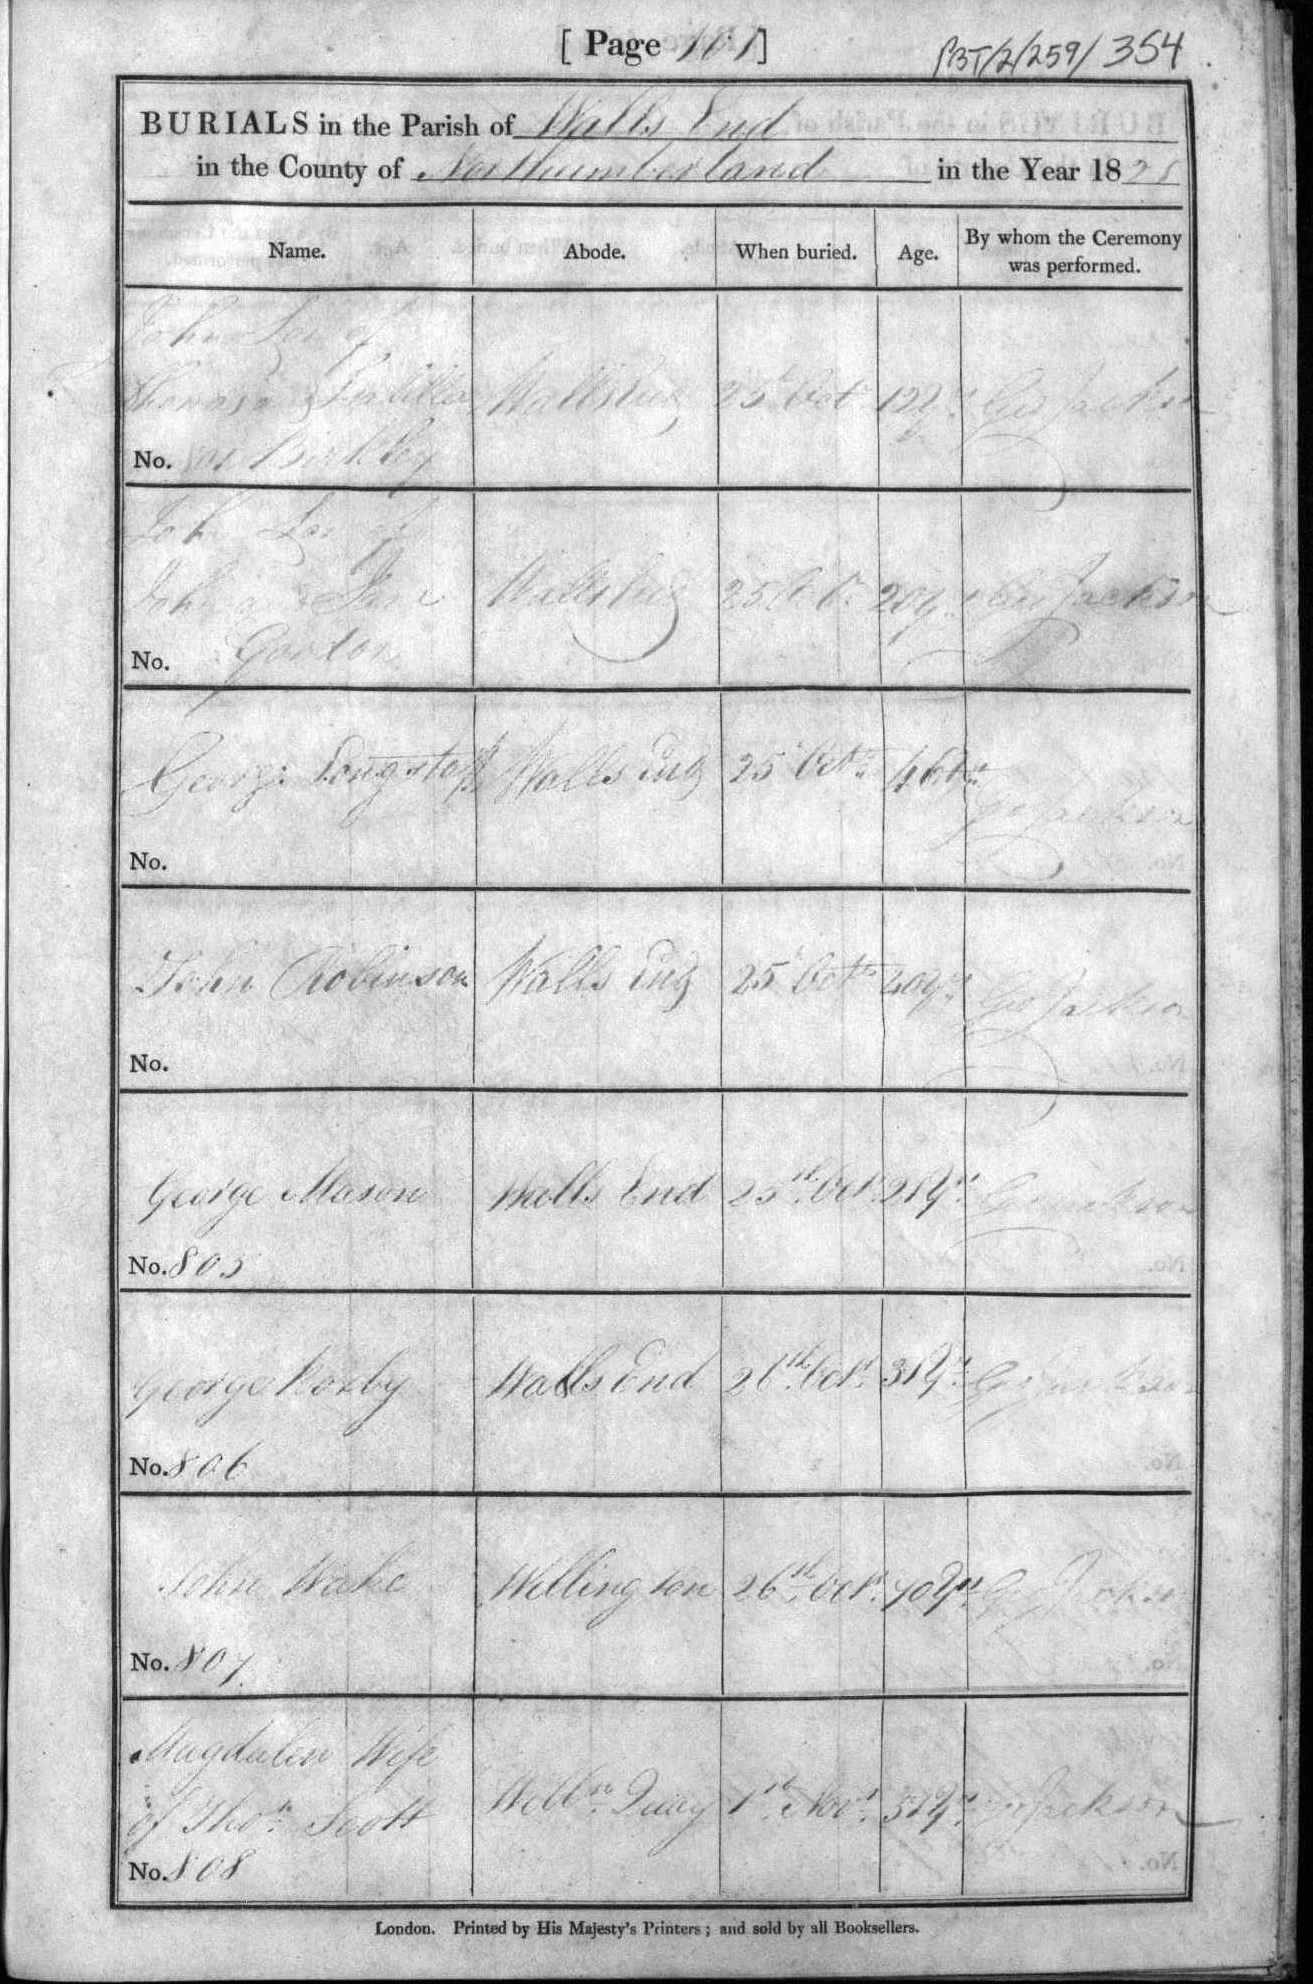 [ Page 101 ]
PBT/2/259/354
BURIALS in the Parish of Walls End
in the County of Northumberland in the Year 1821
Name. Abode. When buried. Age. By whom the Ceremony was performed.
John Son of
Thomas & 
Walls End 25th Octr 12 yrs Geo Jackson
No.
John Son of
John and Jane Walls End 25 Octr 20 yrs Geo Jackson
No. Gordon
George Longstaff Walls End 25 Octr 46 yrs Geo Jackson
No.
John Robinson Walls End 25 Octr 40 yrs Geo Jackson
No.
George Mason Walls End 25th Octr 21 Yrs Geo Jackson
No. 805
George Roxby Walls End 26th Octr 31 Yrs Geo Jackson
No. 806
John Wake Willington 26th Octr 70 Yrs Geo Jackson
No. 807
Magdalen Wife
of Thos Scott Willn Quay 1st Novr 31 Yrs Geo Jackson
No. 808
London. Printed by His Majesty's Printers; and sold by all Booksellers.